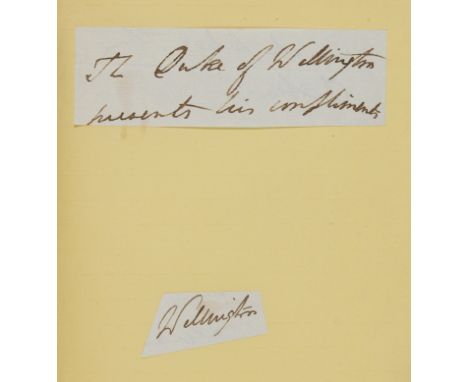 Th Duke of Wellington
presents his compliments
Wellington